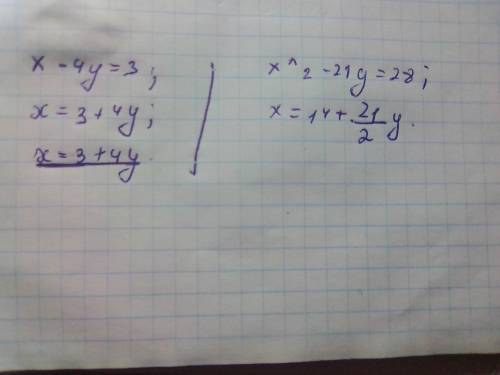 x - 4y = 3;
x = 3 + 4y;
x = 3 + 4y.
x^2 - 21y = 28;
x = 14 + 21/2 y.